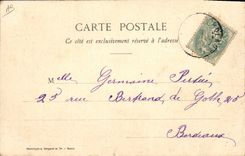 CARTE POSTALE
Ce côté est exclusivement réservé à l'adresse
Melle Germaine
23 rue Bertrand de Goth 23
Bordeaux